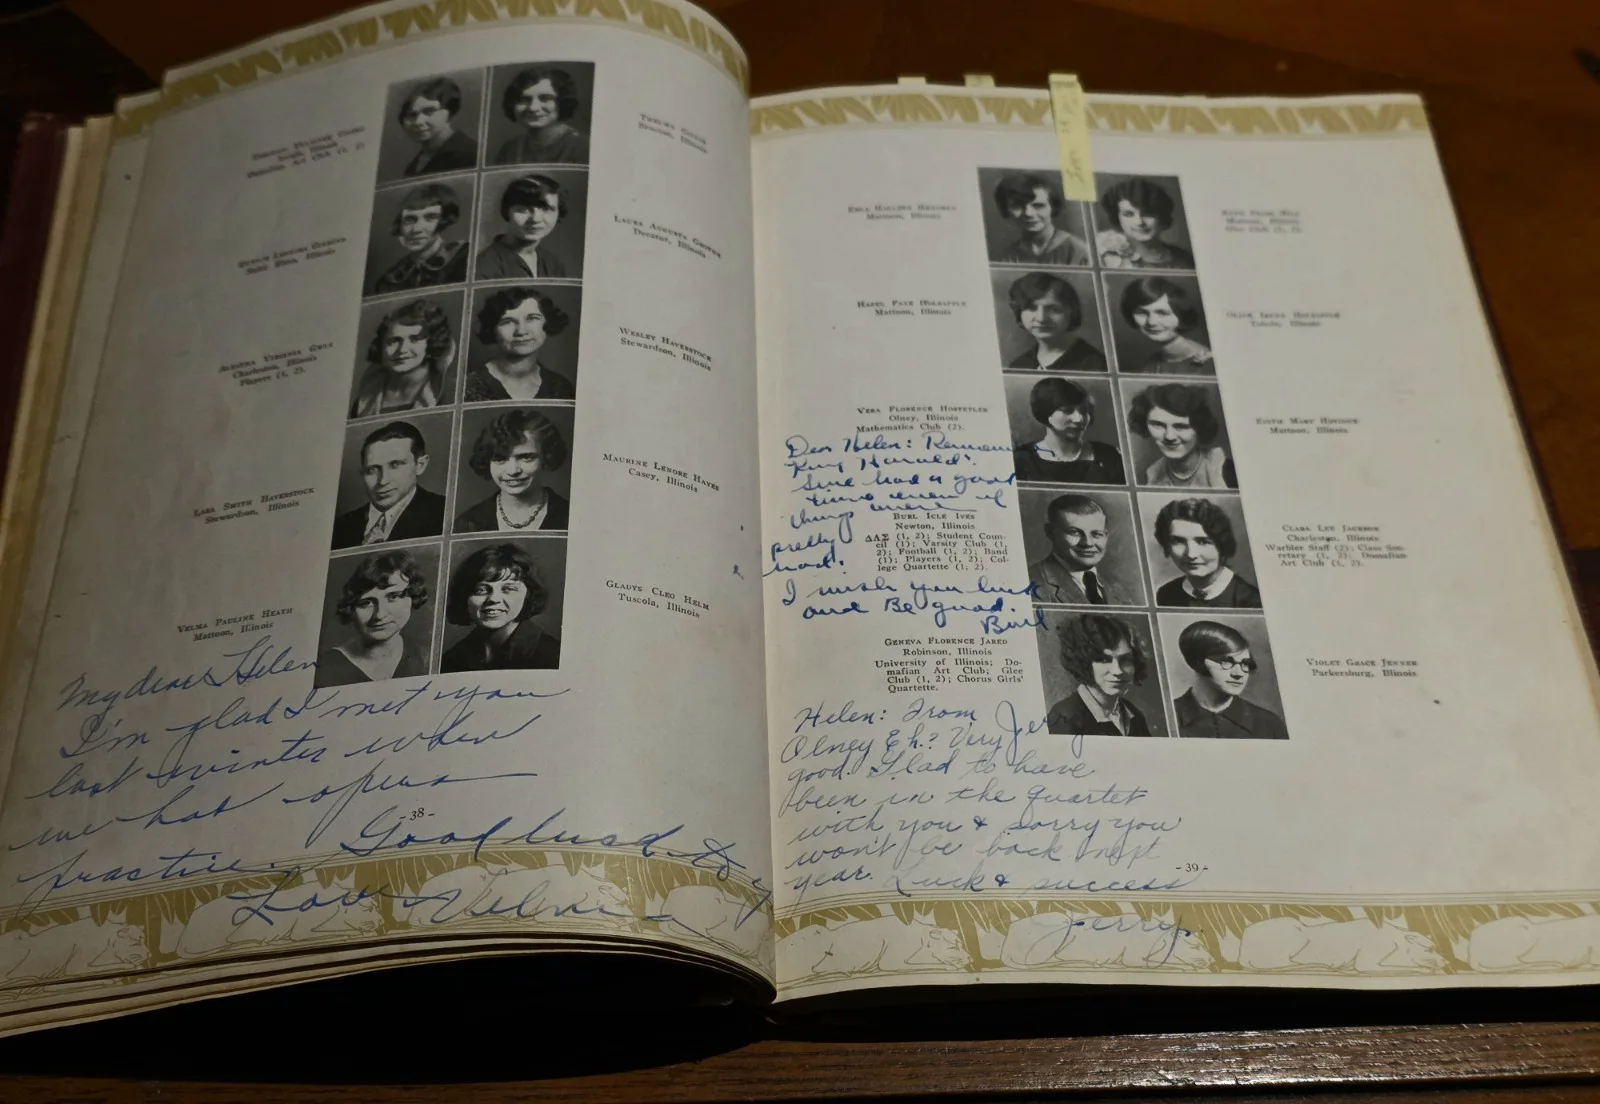 Newton, Illinois
Laura Augusta
Decatur, Illinois
Charleston, Illinois
Players (1, 2).
Wesley Haverstock
Stewardson, Illinois
Lara Smith Haverstock
Stewardson, Illinois
Maurine Lenore Hayes
Casey, Illinois
Velma Pauline Heath
Mattoon, Illinois
Gladys Cleo Helm
Tuscola, Illinois
My dear Helen
I'm glad I met you
last winter when
we had opera
practice. Good luck to
Love Velma
- 38 -
Mattoon, Illinois
Mattoon, Illinois
Glee Club (1, 2).
Hazel Faye Holsapple
Mattoon, Illinois
Olive Irene Holsapple
Toledo, Illinois
Vera Florence Hostetler
Olney, Illinois
Mathematics Club (2).
Mary
Mattoon, Illinois
Dear Helen: Remember
King Harold?
Sure had a good
time even if
things were
pretty
bad.
I wish you luck
and Be good.
Burl.
Burl Icle Ives
Newton, Illinois
ΔΛΣ (1, 2); Student Coun-
cil (1); Varsity Club (1,
2); Football (1, 2); Band
(1); Players (1, 2); Col-
lege Quartette (1; 2).
Clara Lee Jackson
Charleston, Illinois
Warbler Staff (2); Class Sec-
retary (1, 2); Domafian
Art Club (1, 2).
Geneva Florence Jared
Robinson, Illinois
University of Illinois; Do-
mafian Art Club; Glee
Club (1, 2); Chorus Girls'
Quartette.
Violet Grace Jenner
Parkersburg, Illinois
Helen: From Jerry
Olney Eh? Very
good. Glad to have
been in the quartet
with you & sorry you
won't be back next
year. Luck & success
Jerry.
- 39 -